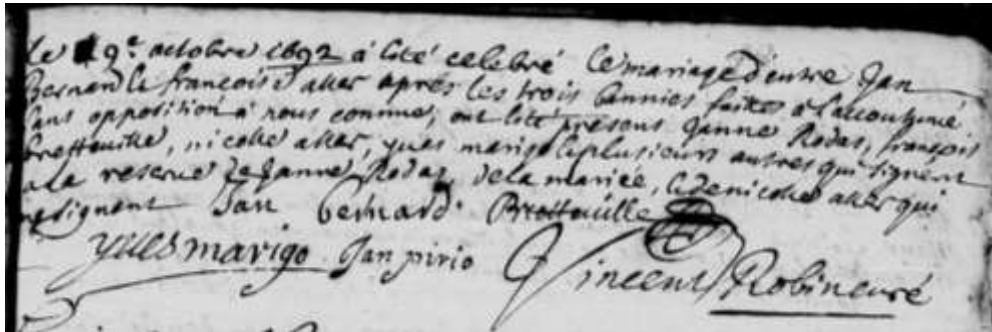 le 9e octobre 1692 à esté celebré le mariage d'entre Jan
Bernard et francoise aller aprés les trois bannies faittes à l'accoutumé
sans opposition à nous connue, ont esté présens Janne Rodas, françois
Brettouille, nicolle aller, yues marigo et plusieurs autres qui signent
a la reserve de Janne Rodas, de la mariée, et de nicolle aller qui
ne signent Jan bernard. Brettouille
yues marigo Jan pirio Vincent Robin curé